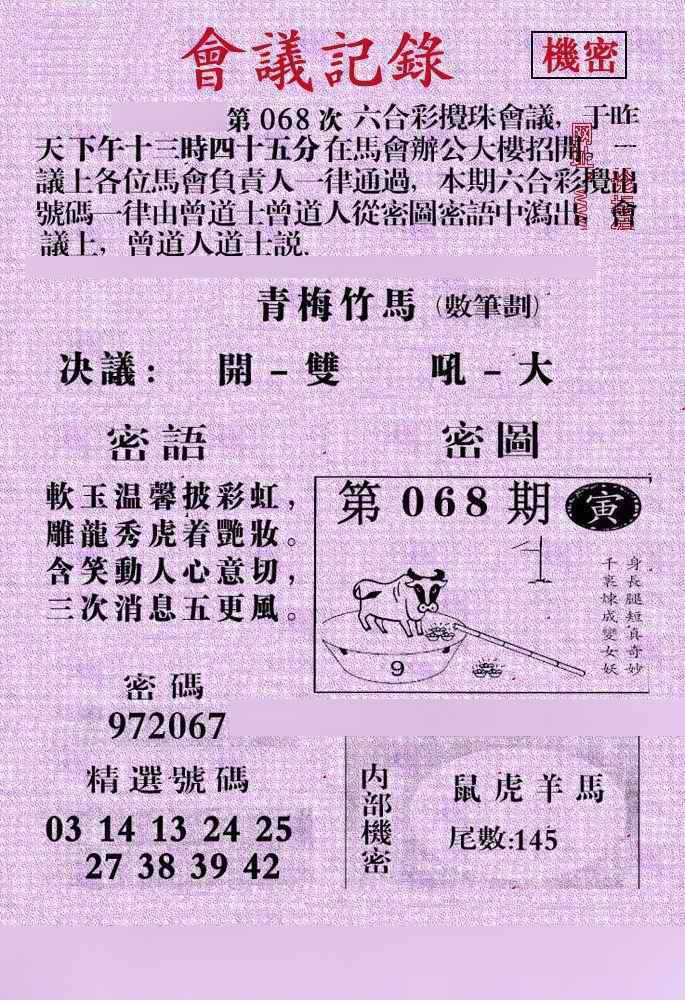 會議記錄
機密
第 068 次 六合彩攪珠會議，于昨
天下午十三時四十五分在馬會辦公大樓招開，一
議上各位馬會負責人一律通過，本期六合彩攪出
號碼一律由曾道士曾道人從密圖密語中瀉出，會
議上，曾道人道士説.
青梅竹馬（數筆劃）
决議： 開－雙 吼－大
密語
軟玉温馨披彩虹，
雕龍秀虎着艷妝。
含笑動人心意切，
三次消息五更風。
密圖
第 068 期 寅
身長腿短真奇妙
千裏煉成變女妖
9
密碼
972067
精選號碼
03 14 13 24 25
27 38 39 42
内部機密
鼠虎羊馬
尾數:145